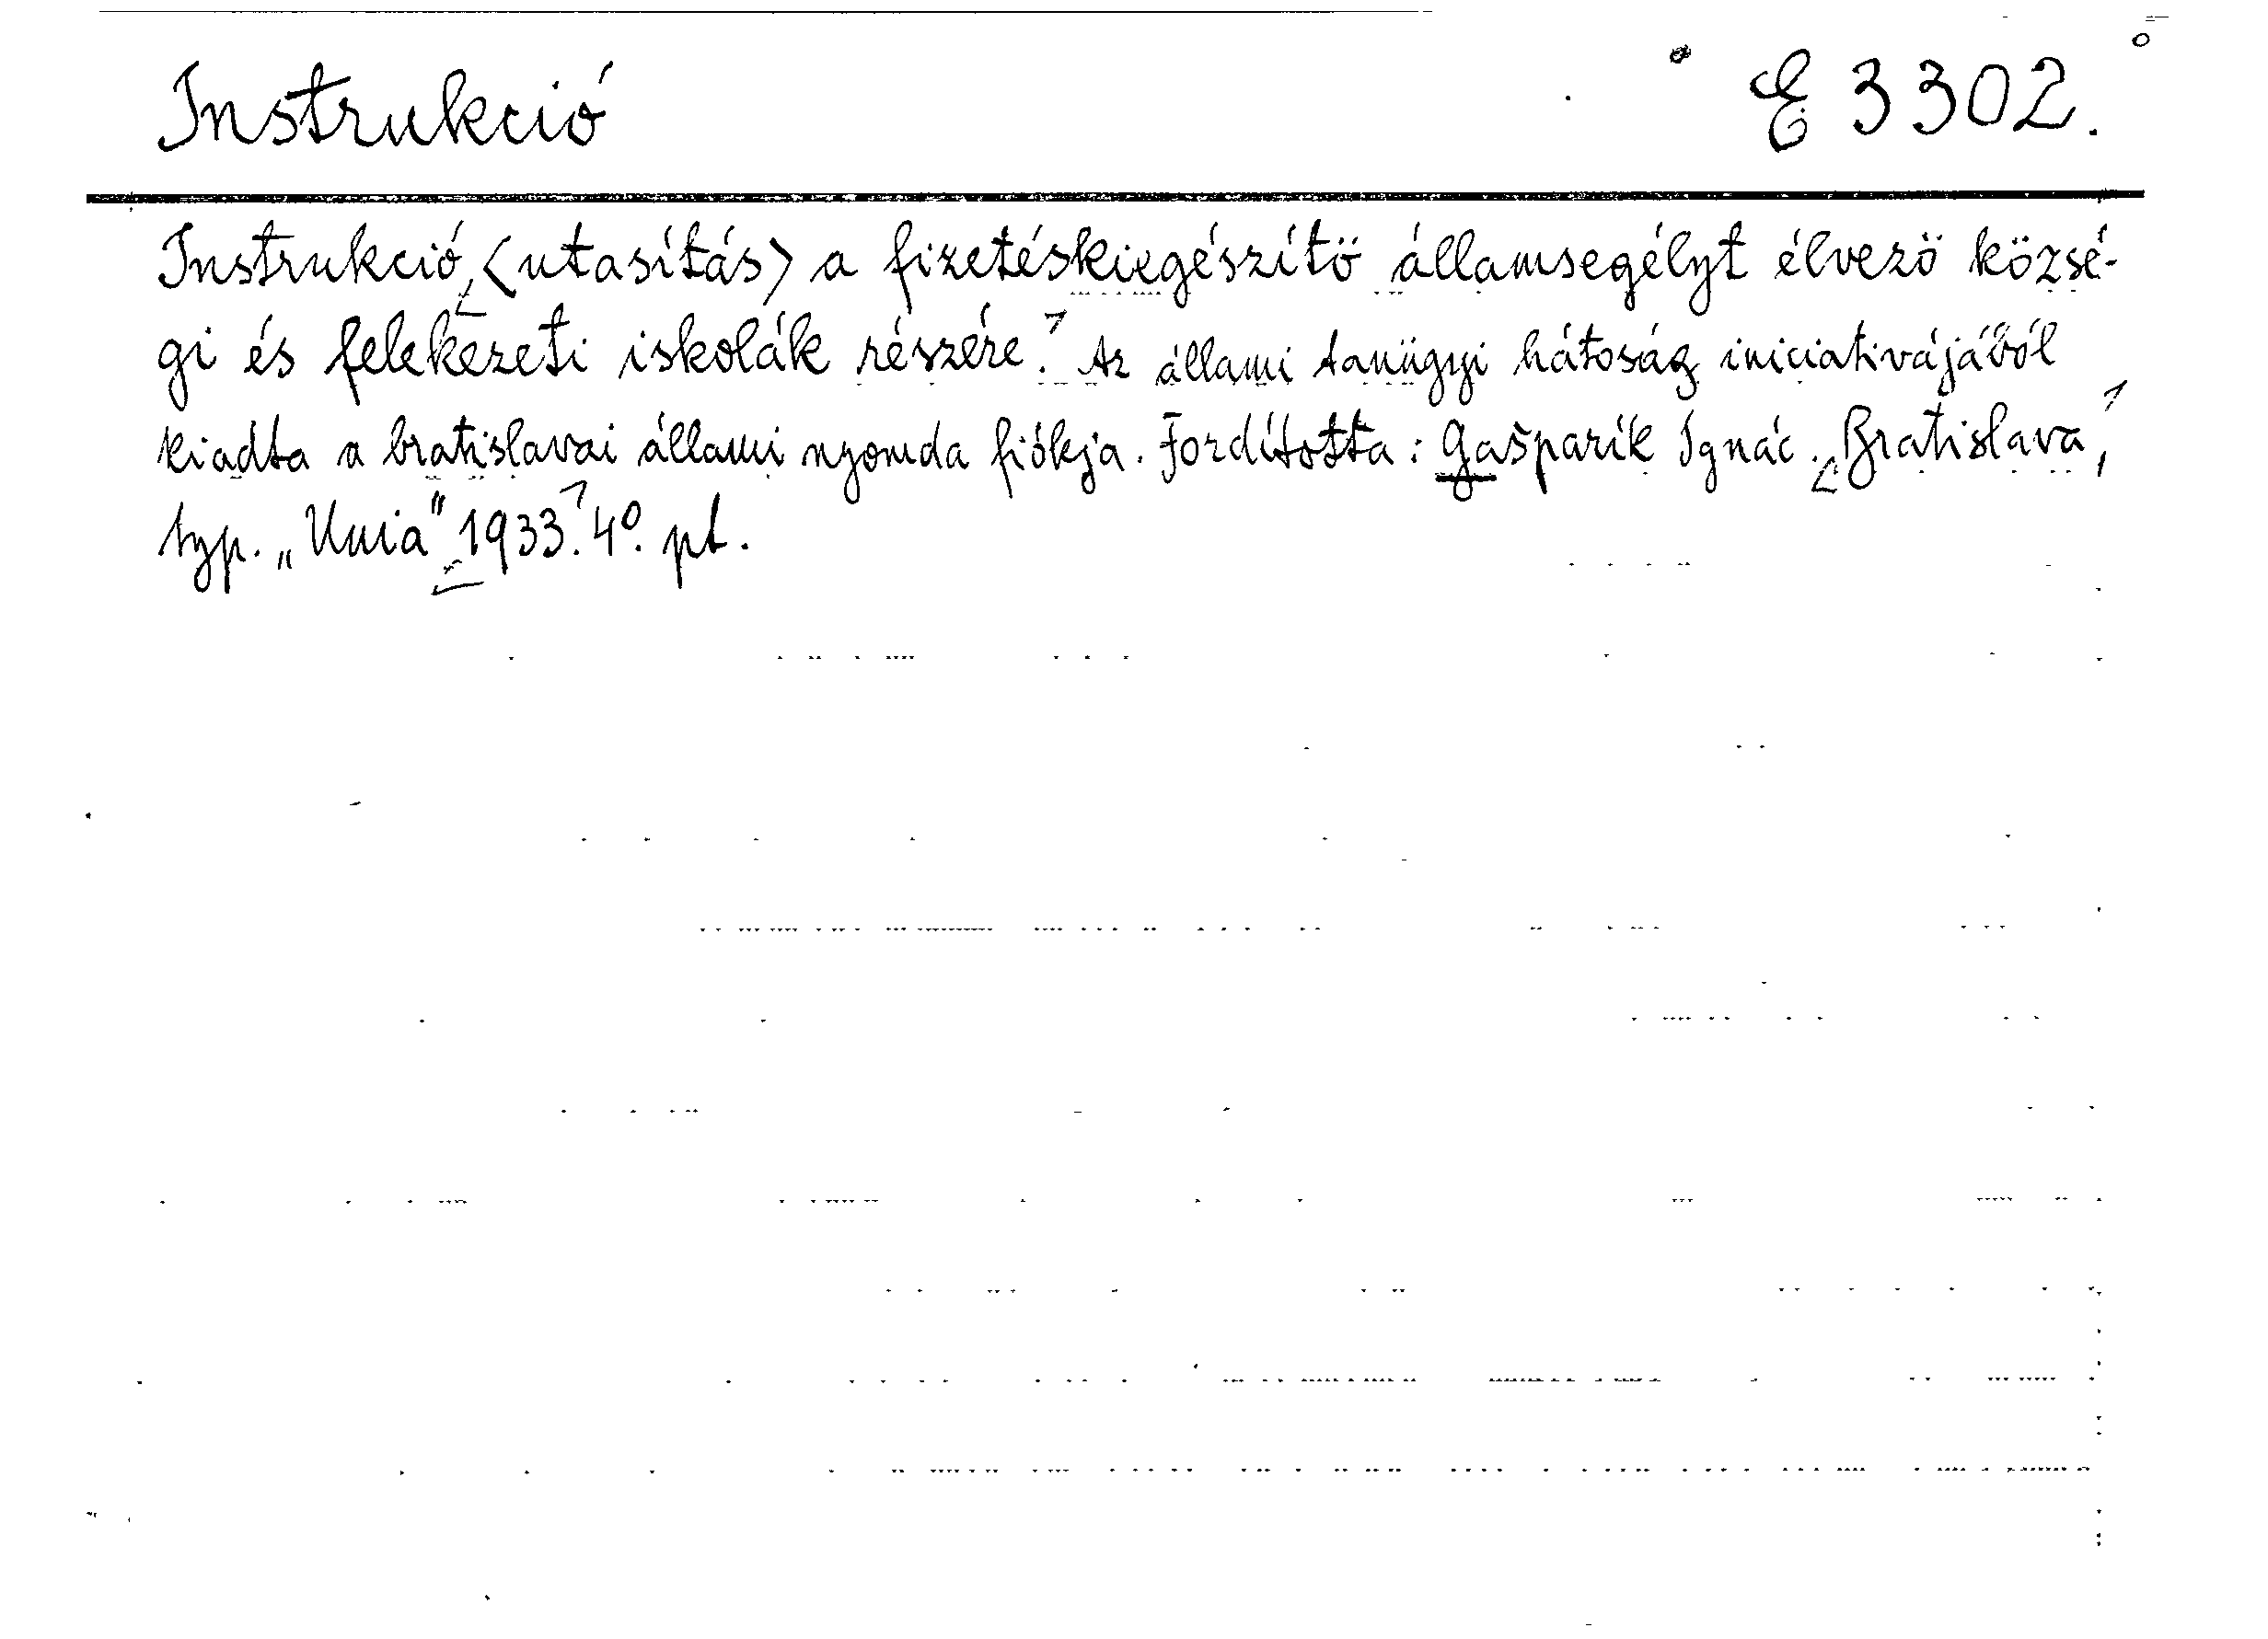 Instrukció
E 3302.
Instrukció <utasítás> a fizetéskiegészítö államsegélyt élvezö közsé-
gi és felekezeti iskolák részére. Az állami tanügyi hátoság iniciativájából
kiadta a bratislavai állami nyomda fiókja. Fordította: Gašparík Ignác. Bratislava,
typ. „Unia" 1933. 4º. pt.